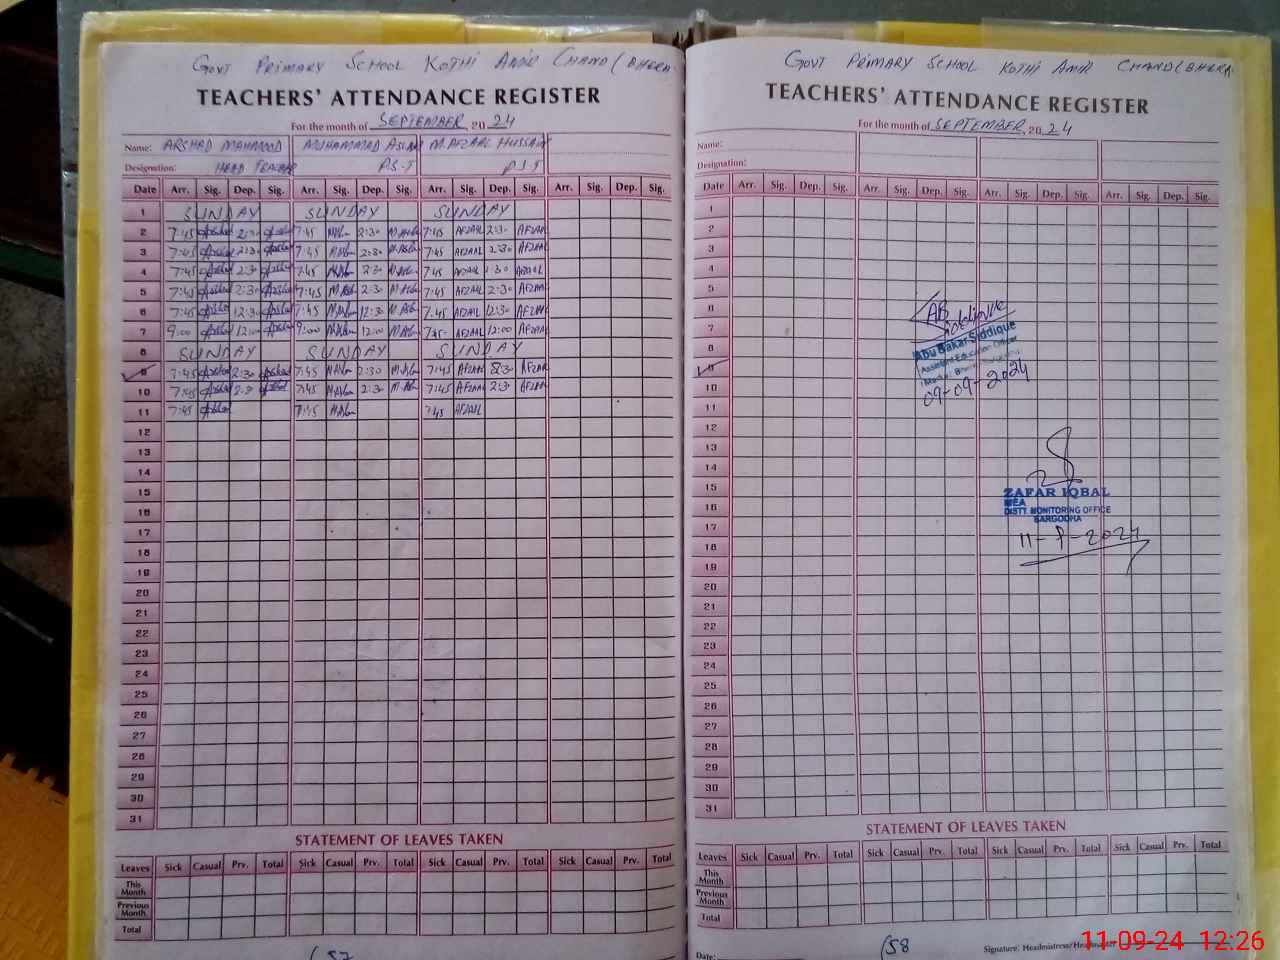 GOVT PRIMARY SCHOOL KOTHI AMIR CHAND (BHERA
TEACHERS' ATTENDANCE REGISTER
For the month of SEPTEMBER, 2024
Name: ARSHAD MAHMOOD MUHAMMAD ASLAM M. AFZAAL HUSSAIN
Designation: HEAD TEACHER P.S.T P.S.T
Date Arr. Sig. Dep. Sig. Arr. Sig. Dep. Sig. Arr. Sig. Dep. Sig. Arr. Sig. Dep. Sig.
1 SUNDAY SUNDAY SUNDAY
2 7:45 Arshad 2:30 Arshad 7:45 M.Aslam 2:30 M.Aslam 7:45 AFZAAL 2:30 AFZAAL
3 7:45 Arshad 2:30 Arshad 7:45 M.Aslam 2:30 M.Aslam 7:45 AFZAAL 2:30 AFZAAL
4 7:45 Arshad 2:30 Arshad 7:45 M.Aslam 2:30 M.Aslam 7:45 AFZAAL 2:30 AFZAAL
5 7:45 Arshad 2:30 Arshad 7:45 M.Aslam 2:30 M.Aslam 7:45 AFZAAL 2:30 AFZAAL
6 7:45 Arshad 12:30 Arshad 7:45 M.Aslam 12:30 M.Aslam 7:45 AFZAAL 12:30 AFZAAL
7 9:00 Arshad 12:00 Arshad 9:00 M.Aslam 12:00 M.Aslam 7:45 AFZAAL 12:00 AFZAAL
8 SUNDAY SUNDAY SUNDAY
9 7:45 Arshad 2:30 Arshad 7:45 M.Aslam 2:30 M.Aslam 7:45 AFZAAL 2:30 AFZAAL
10 7:45 Arshad 2:30 Arshad 7:45 M.Aslam 2:30 M.Aslam 7:45 AFZAAL 2:30 AFZAAL
11 7:45 Arshad 7:45 M.Aslam 7:45 AFZAAL
12
13
14
15
16
17
18
19
20
21
22
23
24
25
26
27
28
29
30
31
STATEMENT OF LEAVES TAKEN
Leaves Sick Casual Prv. Total Sick Casual Prv. Total Sick Casual Prv. Total Sick Casual Prv. Total
This Month
Previous Month
Total
157
GOVT PRIMARY SCHOOL KOTHI AMIR CHAND (BHERA
TEACHERS' ATTENDANCE REGISTER
For the month of SEPTEMBER, 2024
Name:
Designation:
Date Arr. Sig. Dep. Sig. Arr. Sig. Dep. Sig. Arr. Sig. Dep. Sig. Arr. Sig. Dep. Sig.
1
2
3
4
5
6
7
8
9
10
11
12
13
14
15
16
17
18
19
20
21
22
23
24
25
26
27
28
29
30
31
AB Siddique
Abu Bakar Siddique
Assistant Education Officer
09-09-2024
ZAFAR IQBAL
MEA
DISTT. MONITORING OFFICE
SARGODHA
11-9-2024
STATEMENT OF LEAVES TAKEN
Leaves Sick Casual Prv. Total Sick Casual Prv. Total Sick Casual Prv. Total Sick Casual Prv. Total
This Month
Previous Month
Total
158
Date:
Signature: Headmistress/Headmaster
11-09-24 12:26